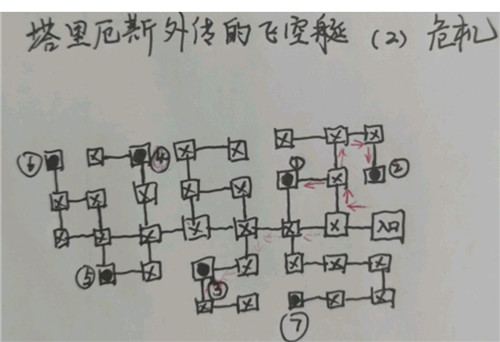 塔里厄斯外传的飞空艇 (2) 危机
④
⑥
①
②
入口
⑤
③
⑦